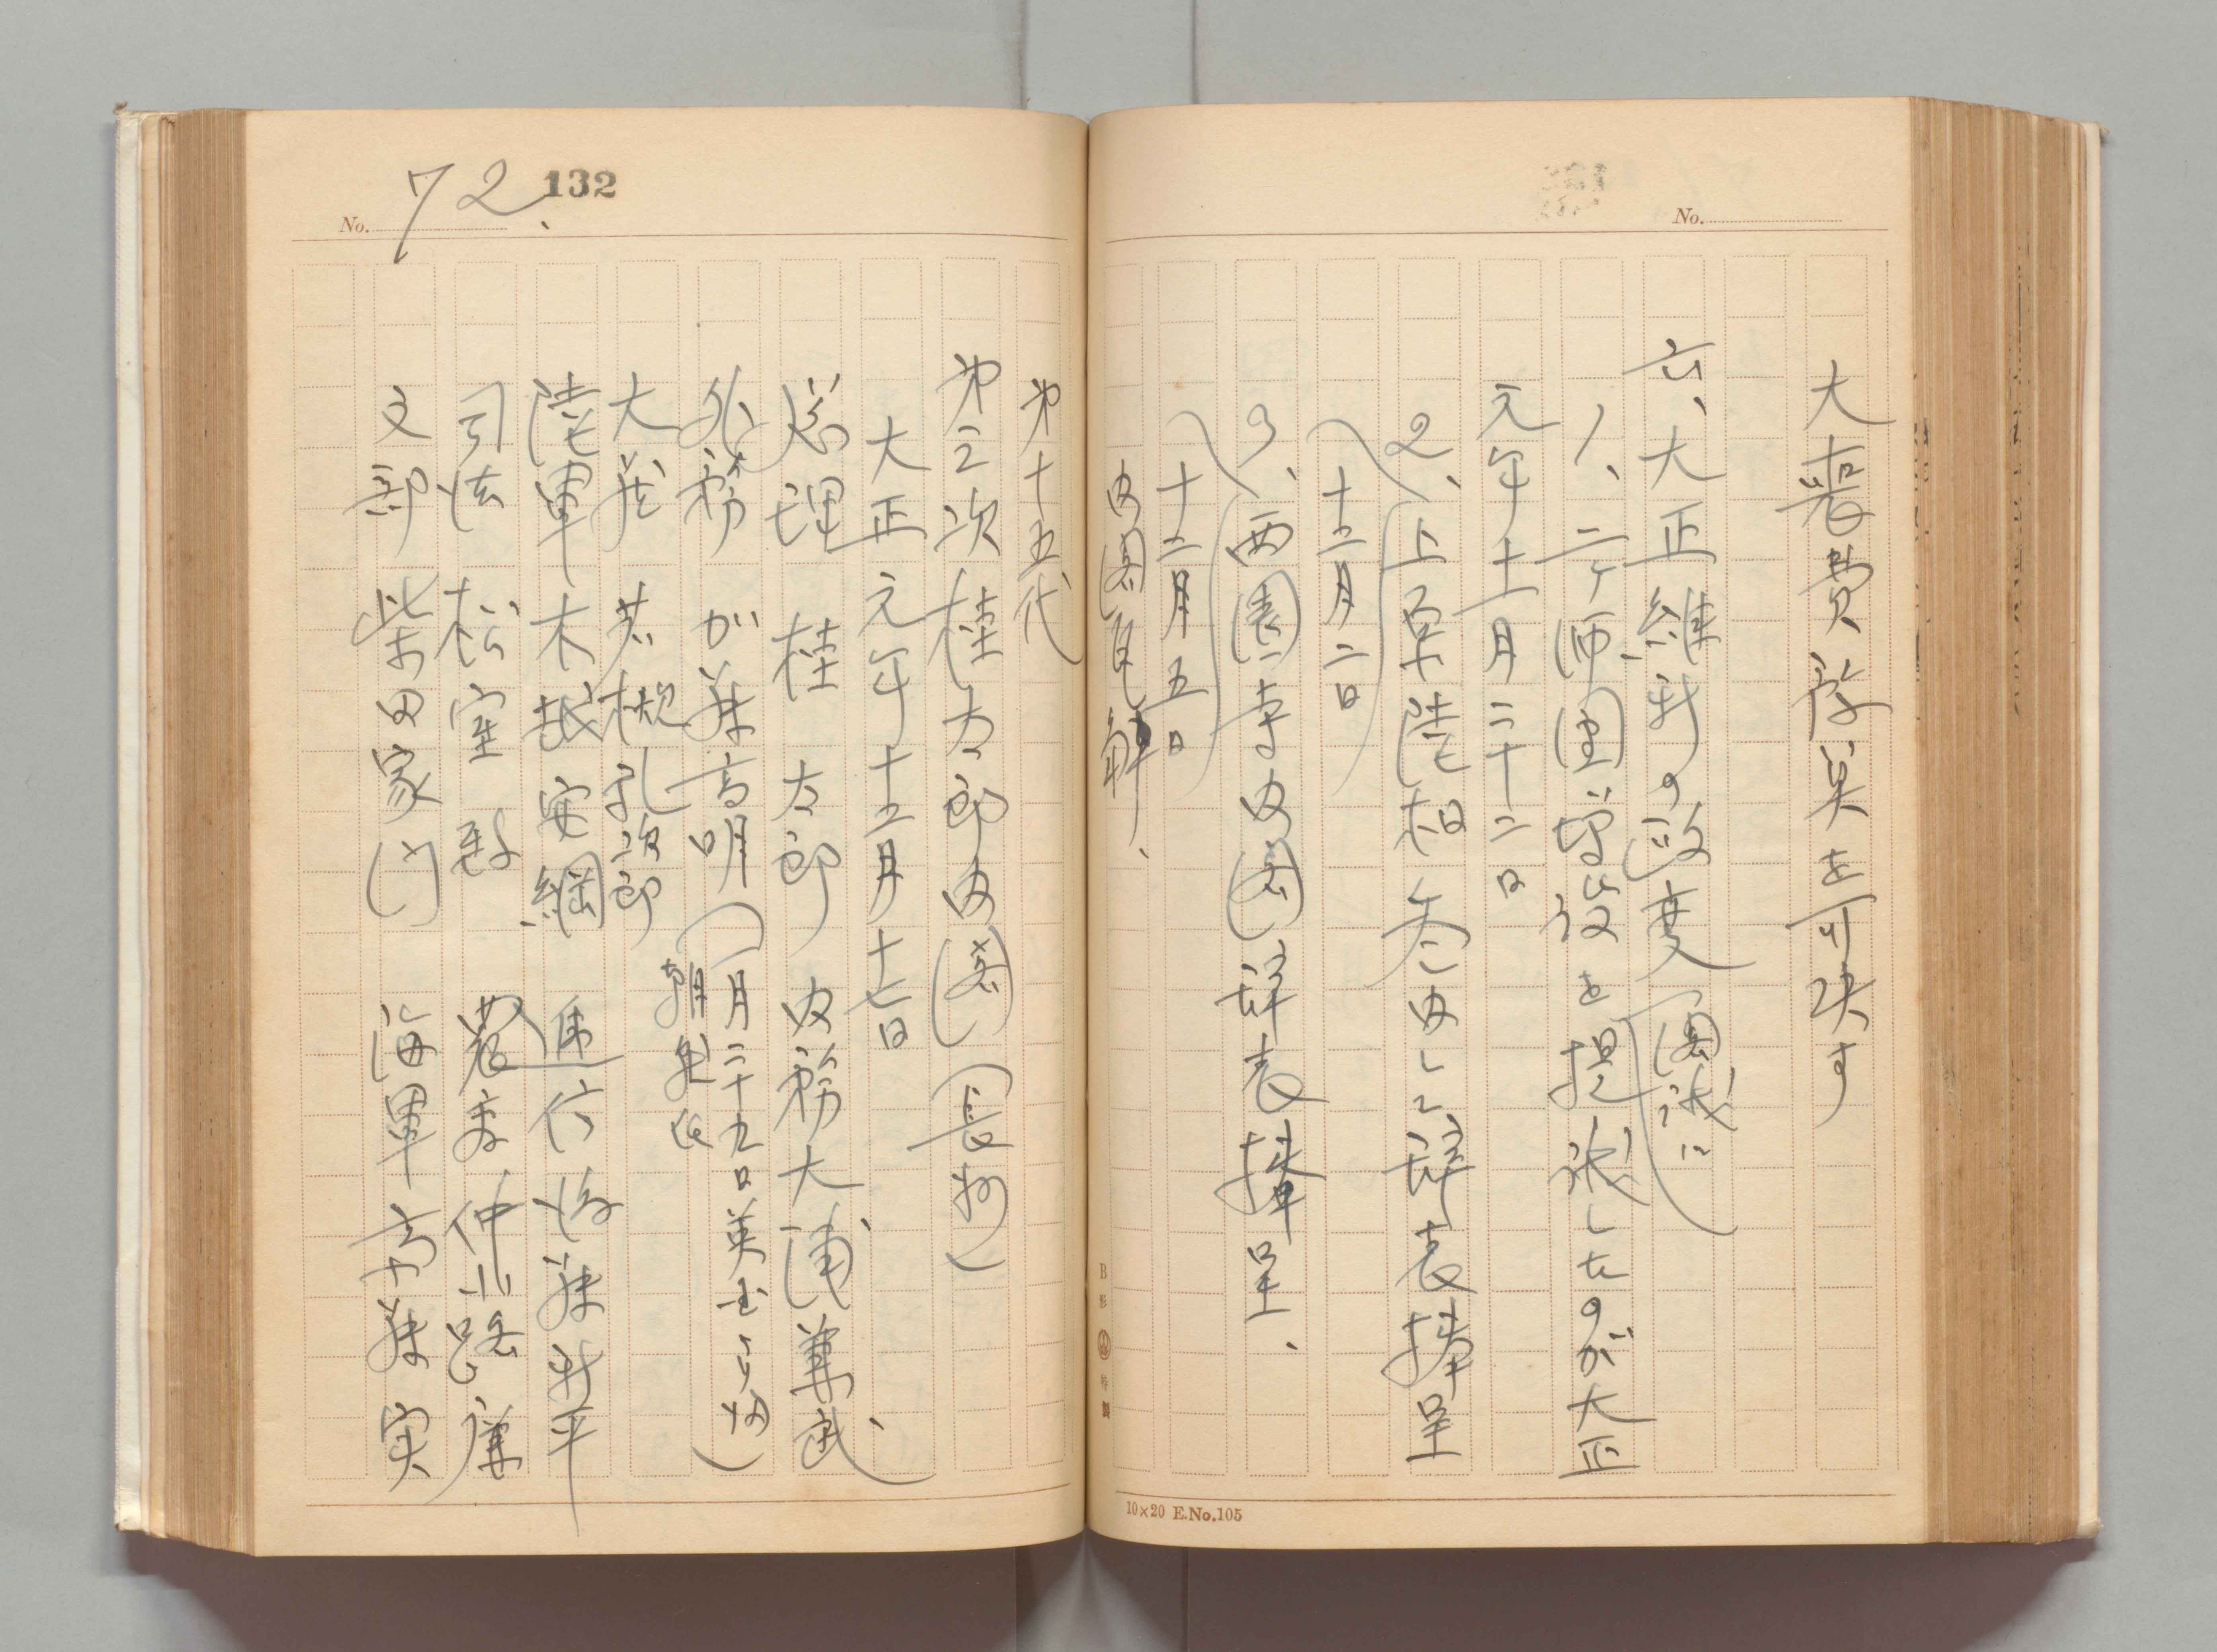 No.
大喪費豫算を可決す
六、大正維新の政変(閣議に
1、二ケ師団増設を提議したのが大正
元年十一月二十二日
2、(上原陸相参内して辞表捧呈
(十二月二日)
3、(西園寺内閣辞表捧呈、
(十二月五日)
内閣瓦解、
B形 特製
10×20 E.No.105
132
No. 72、
第十五代
第三次桂太郎内閣(長州)
大正元年十二月十七日
総理 桂 太郎 内務 大浦兼武
外務 加藤高明(一月二十九日英国ヨリ帰
朝就任)
大蔵 若槻礼次郎
陸軍 木越安綱 逓信 後藤新平
司法 松室 致 農商 仲小路廉
文部 柴田家門 海軍 斎藤 実